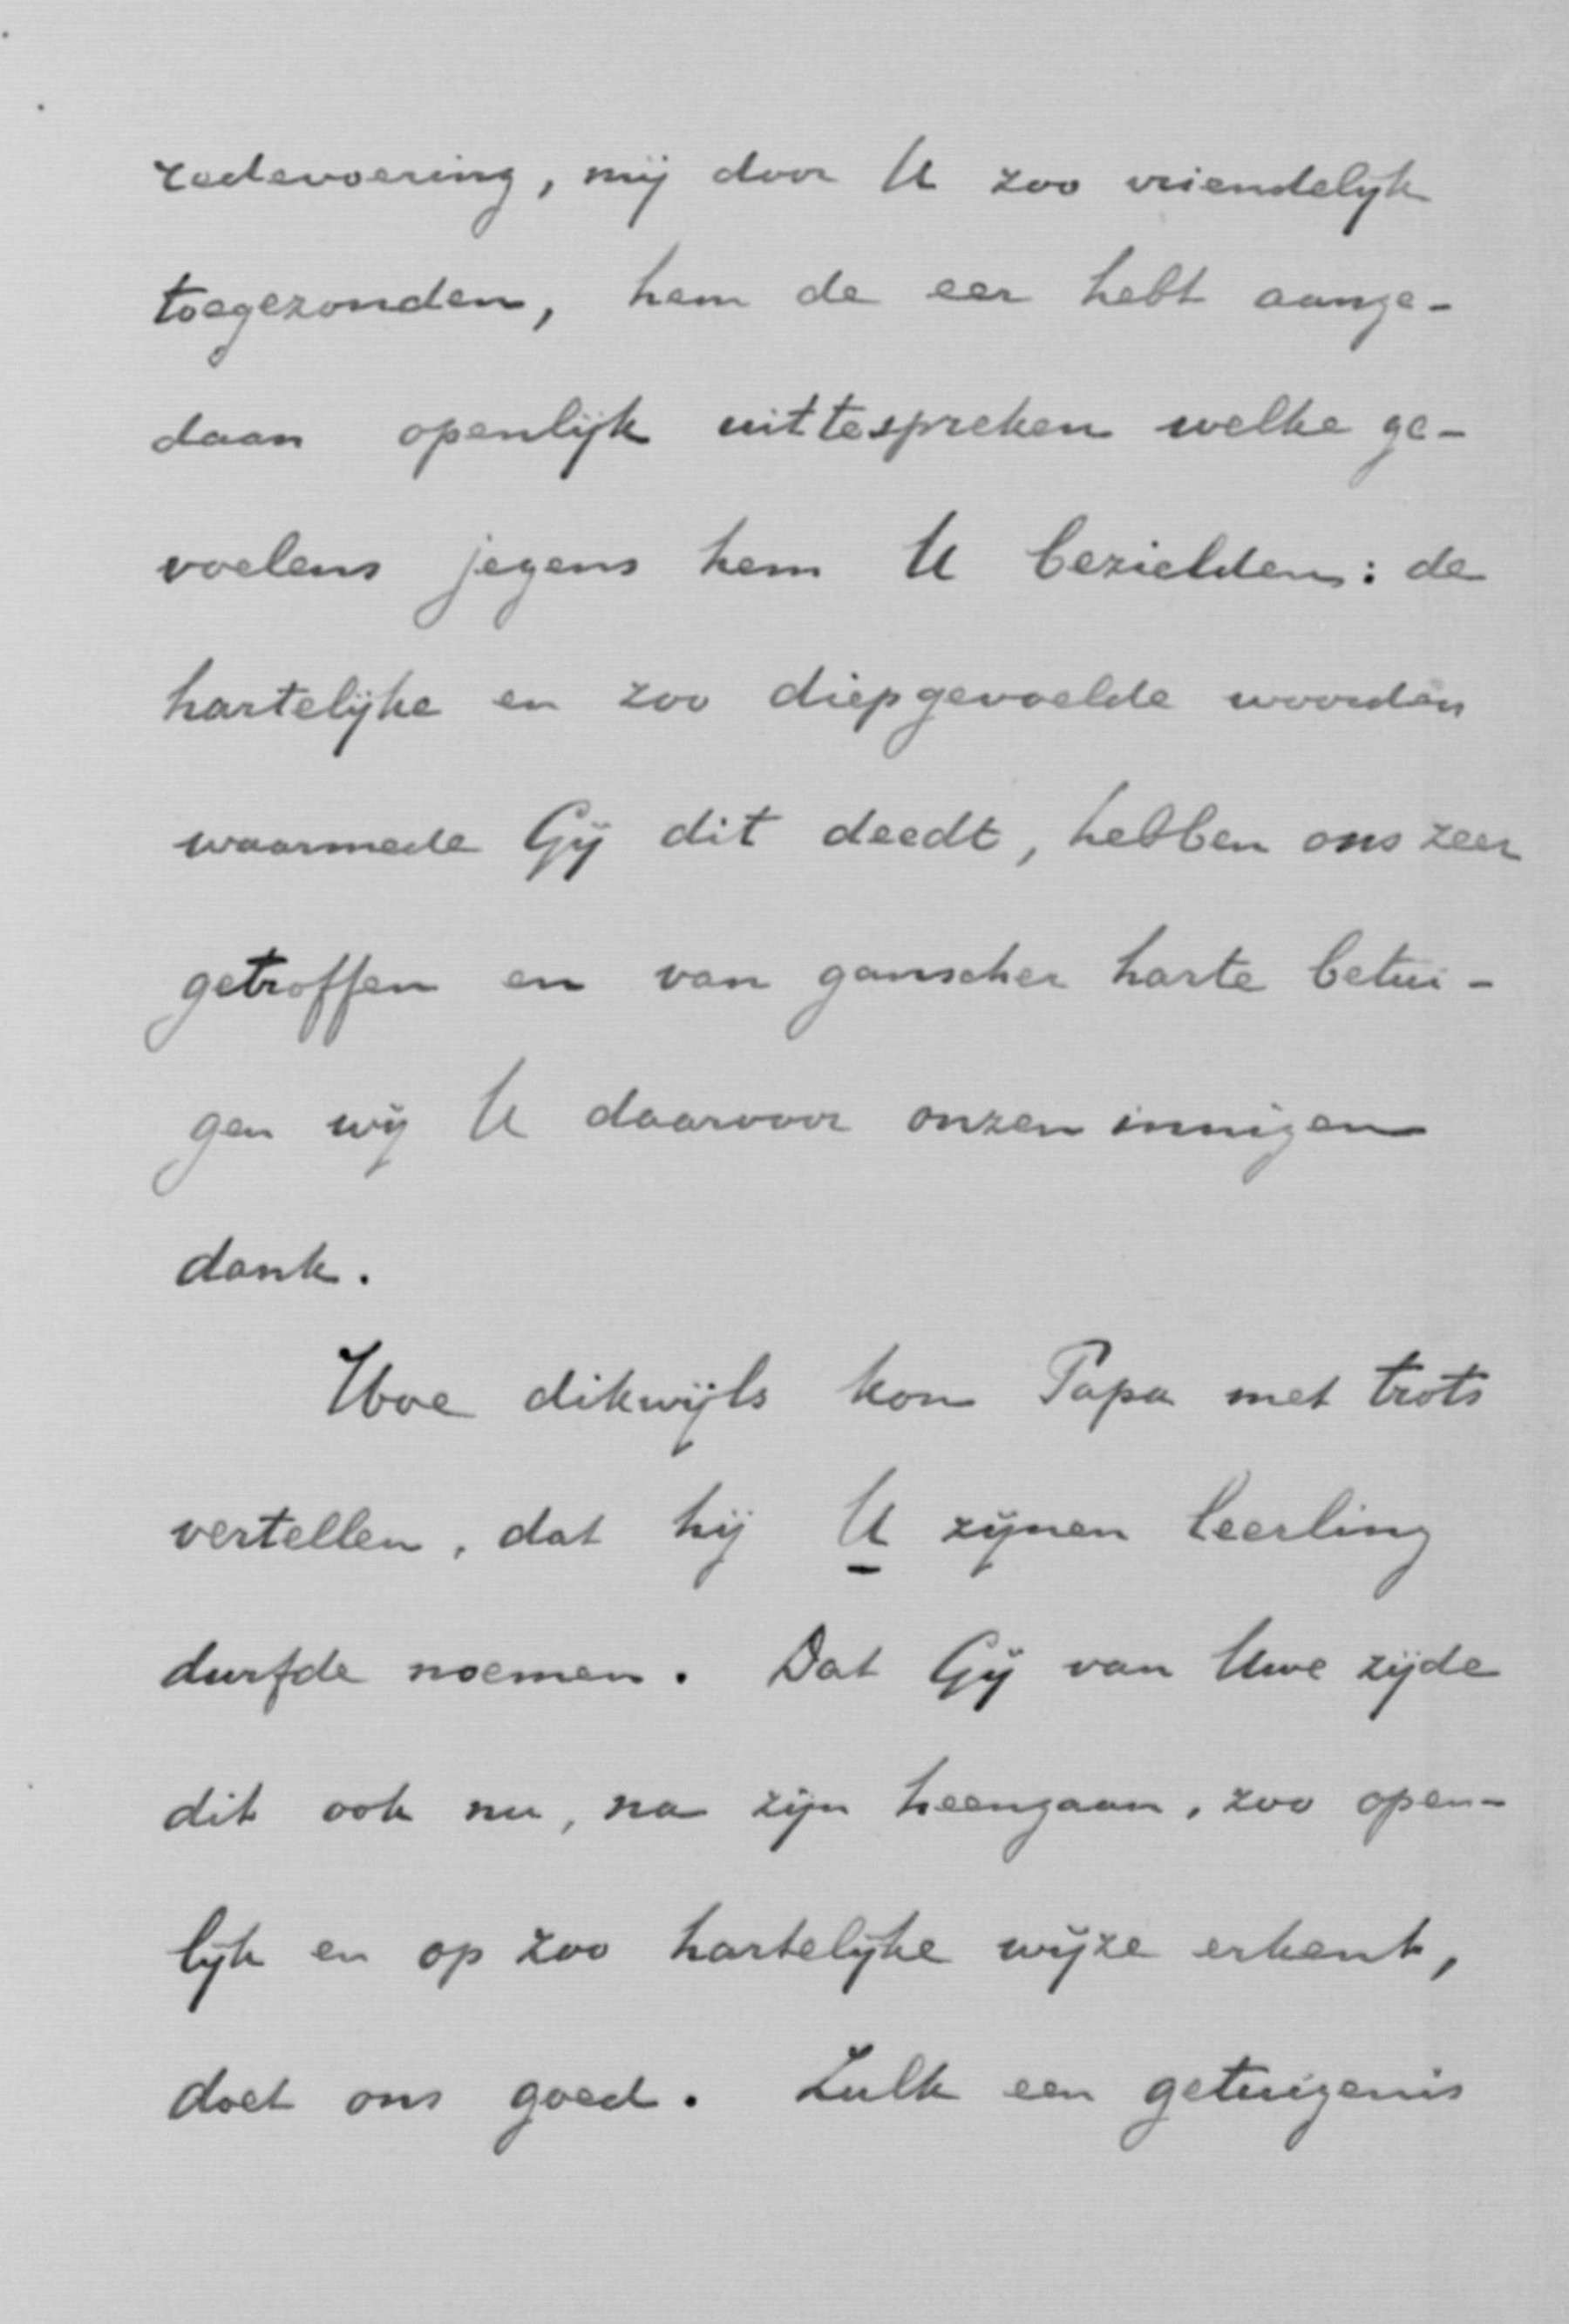 redevoering, mij door U zoo vriendelijk
toegezonden, hem de eer hebt aange-
daan openlijk uittespreken welke ge-
voelens jegens hem U bezielden: de
hartelijke en zoo diepgevoelde woorden
waarmede Gij dit deedt, hebben ons zeer
getroffen en van ganscher harte betui-
gen wij U daarvoor onzen innigen
dank.
Hoe dikwijls kon Papa met trots
vertellen, dat hij U zijnen leerling
durfde noemen. Dat Gij van Uwe zijde
dit ook nu, na zijn heengaan, zoo open-
lijk en op zoo hartelijke wijze erkent,
doet ons goed. Zulk een getuigenis